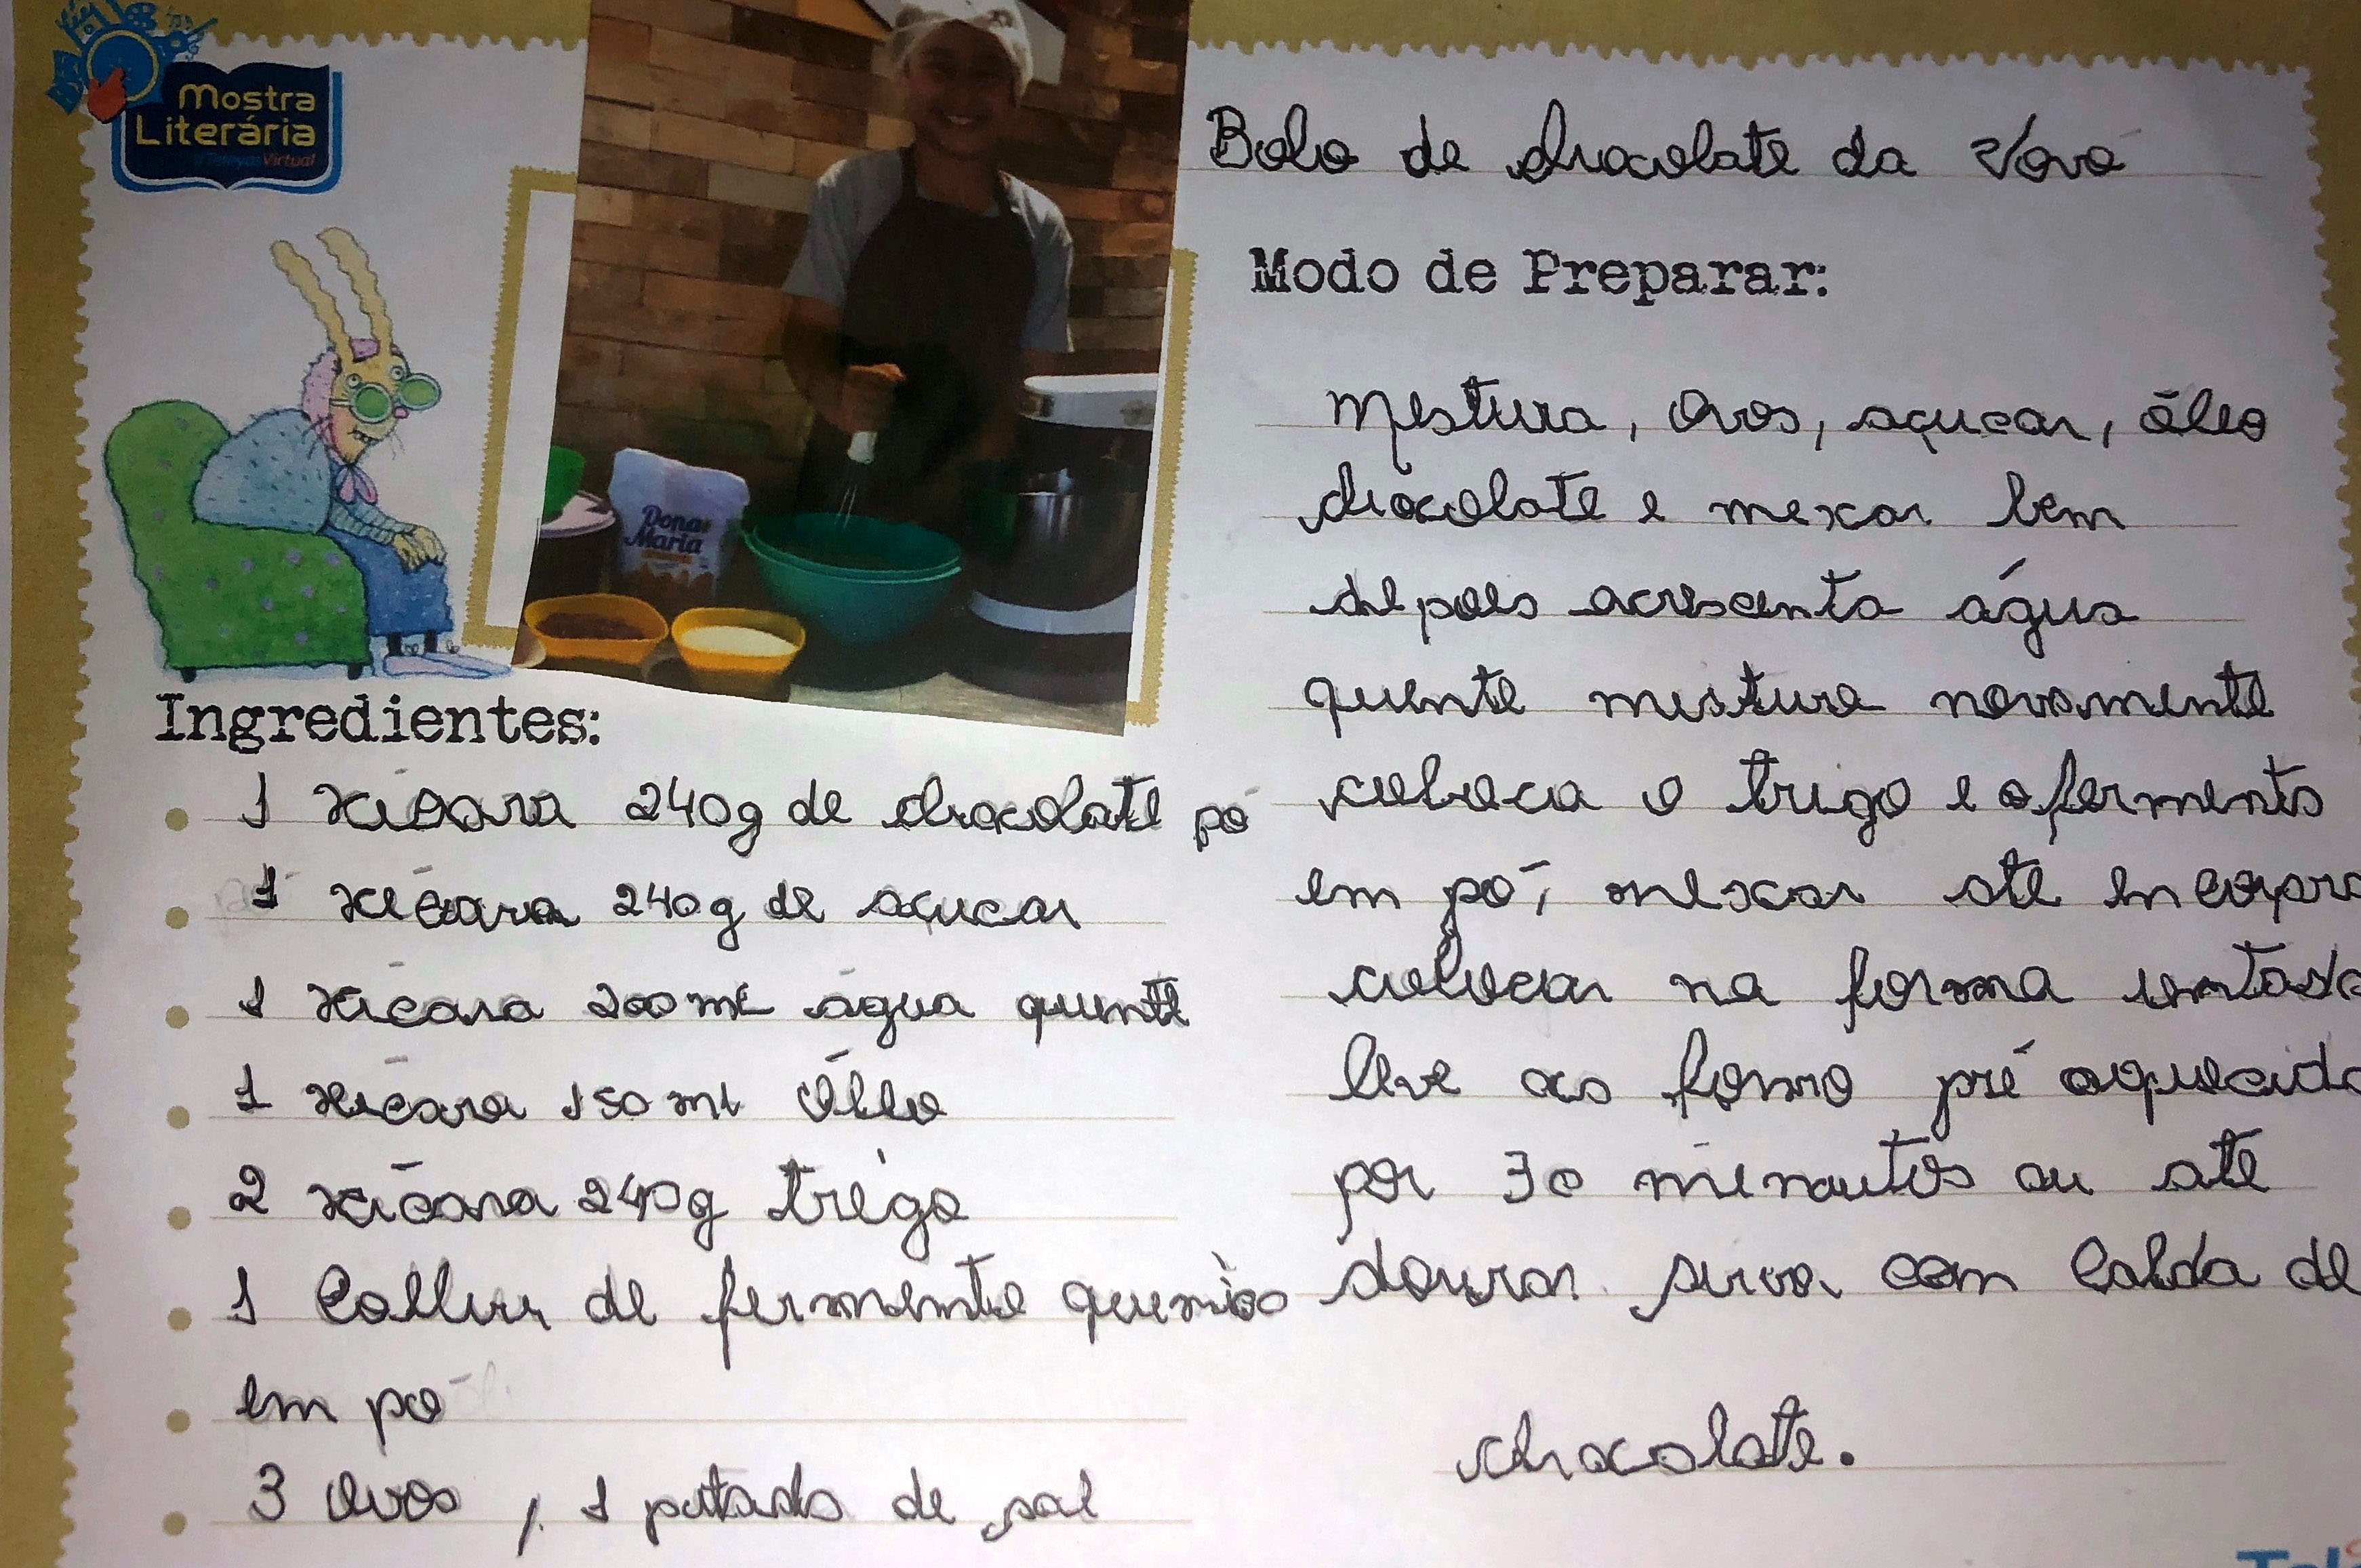 Mostra
Literária
#TeleyosVirtual
Dona
Maria
Bolo de chocolate da Vovó
Modo de Preparar:
Mistura, ovos, açucar, óleo
chocolate e mexar bem
depois acrescenta água
quente mistura novamente
coloca o trigo e o fermento
em pó, mexar até incorpora
colocar na forma untada
leve ao forno pré aquecido
por 30 minutos ou até
dourar. serva com calda de
chocolate.
Ingredientes:
1 xícara 240g de chocolate pó
1 xícara 240g de açucar
1 xícara 200 ml água quente
1 xícara 150 ml óleo
2 xícara 240g trigo
1 colher de fermento quemico
em pó
3 ovos, 1 pitada de sal